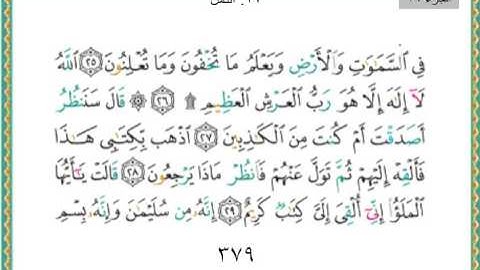 فِي ٱلسَّمَٰوَٰتِ وَٱلْأَرْضِ وَيَعْلَمُ مَا تُخْفُونَ وَمَا تُعْلِنُونَ ٢٥ ٱللَّهُ
لَآ إِلَٰهَ إِلَّا هُوَ رَبُّ ٱلْعَرْشِ ٱلْعَظِيمِ ۩ ٢٦ ۞ قَالَ سَنَنظُرُ
أَصَدَقْتَ أَمْ كُنتَ مِنَ ٱلْكَٰذِبِينَ ٢٧ ٱذْهَب بِّكِتَٰبِي هَٰذَا
فَأَلْقِهْ إِلَيْهِمْ ثُمَّ تَوَلَّ عَنْهُمْ فَٱنظُرْ مَاذَا يَرْجِعُونَ ٢٨ قَالَتْ يَٰٓأَيُّهَا
ٱلْمَلَؤُا۟ إِنِّىٓ أُلْقِىَ إِلَىَّ كِتَٰبٌ كَرِيمٌ ٢٩ إِنَّهُۥ مِن سُلَيْمَٰنَ وَإِنَّهُۥ بِسْمِ
٣٧٩